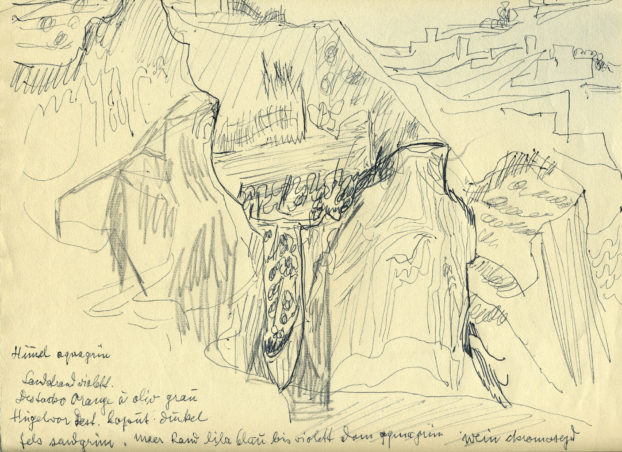 Hund aquagrün
Sandstrand violett.
Destacbo Orange à oliv grau
Hügel vor Dest. kaput. dunkel
fels sandgrün. meer Rand lila blau bis violett dann aquagrün wein